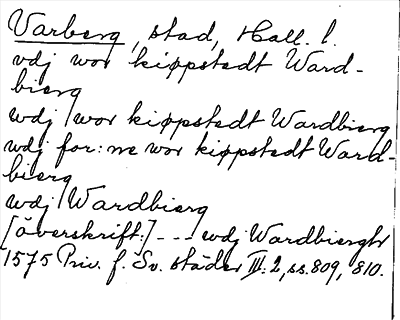 Varberg, stad, Hall. l.
vdj wor kiøpstedt Ward-
bierg
wdj wor kiøpstedt Wardbierg
wdj for:ne wor kiøpstedt Ward-
bierg
wdj Wardbierg
[överskrift:] --- wdj Wardbierghr
1575 Priv. f. Sv. städer III:2, ss. 809, 810.